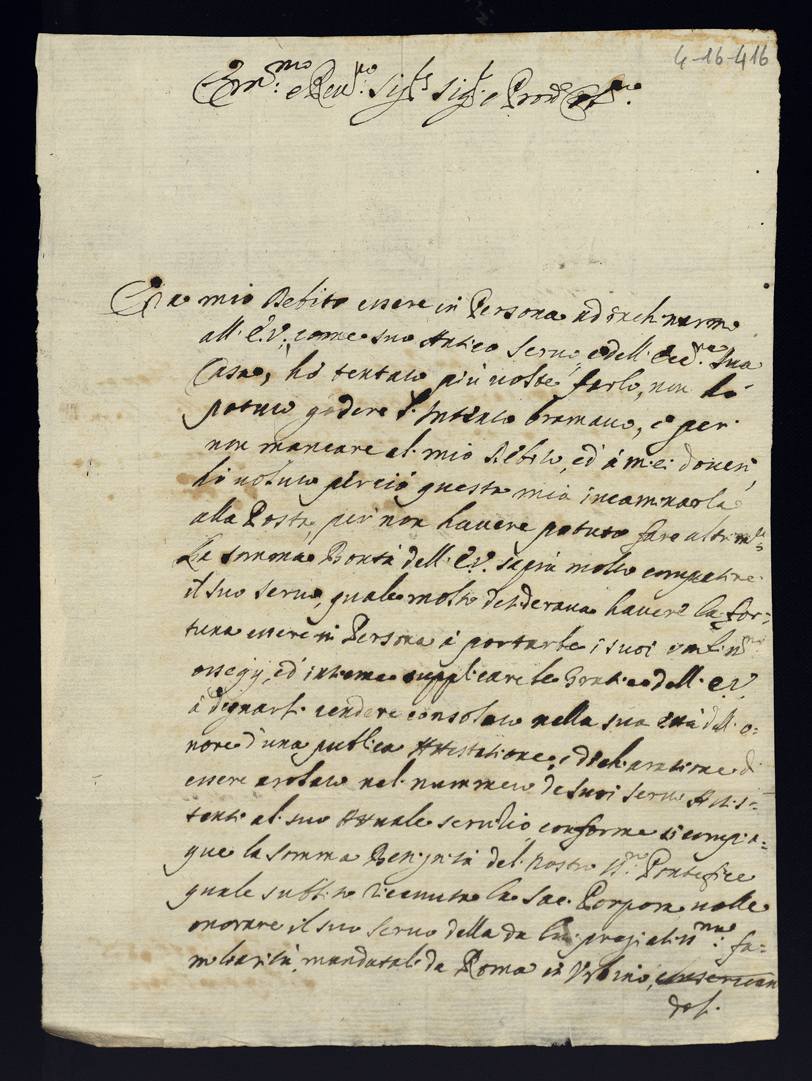 4-16-416
Em:mo e Reu:mo Sig.r Sig.r e Pron Col:mo
Era mio debito essere in Persona ad inchinarm
all'E.V., come suo Antico seruo, e dell'Ecc.ma sua
Casa, hò tentato più uolte farlo, non hò
potuto godere l'intento bramato, e per
non mancare al mio debito, ed à miei doueri,
hò uoluto perciò questa mia incaminarla
alla Posta, per non hauere potuto fare altrim.ti
La somma Bontà dell'E.V. saprà molto compatire
il suo seruo, quale molto desideraua hauere la for:
tuna essere in Persona à portarle i suoi
ossequj, ed insieme supplicare le Gratie dell'E.V.
à degnarsi rendere consolato nella sua età dell'o:
nore d'una publica Attestatione, e dichiaratione di
essere arolato nel numero de suoi serui Attis:
tenti al suo Attuale seruitio, conforme si compia:
que la somma Benignità del nostro S.mo Pontefice
quale subbito riceuuta la Sac. Porpora uolle
onorare il suo seruo della da lui pregiatiss:ma fa:
miliarità, mandatali da Roma in Urbino,